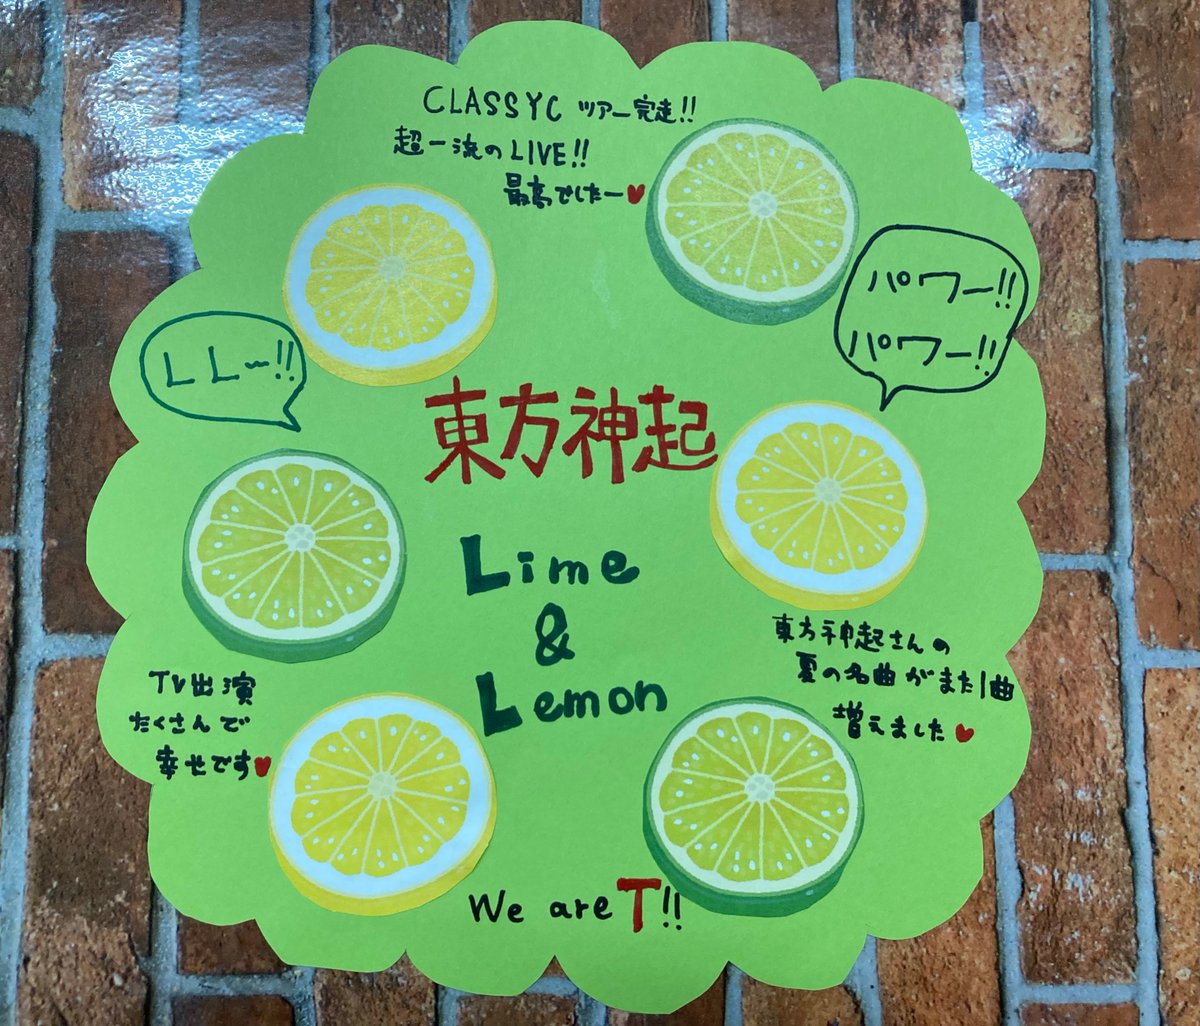 CLASSYC ツアー完走!!
超一流のLIVE!!
最高でしたー♥
パワー!!
パワー!!
LLー!!
東方神起
Lime
&
Lemon
東方神起さんの
夏の名曲がまた1曲
増えました♥
TV出演
たくさんで
幸せです♥
We are T!!